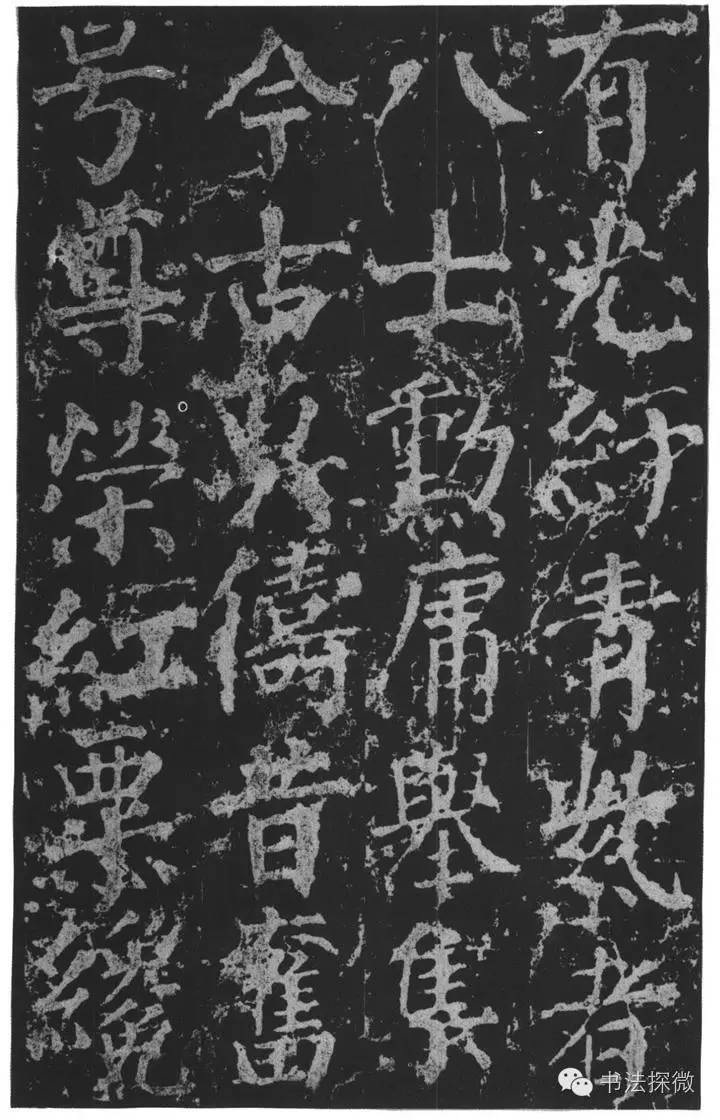 有光紆青紫者
八士勳庸舉集
今古莫儔昔奮
号尊榮紅粟纔
书法探微